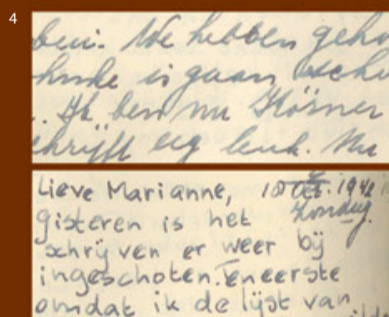 4
ben. We hebben geho
hnke is gaan sche
. Ik ben nu Körner
chrijft erg leuk. Nu
Lieve Marianne, 10 Oct. 1942
Zondag.
gisteren is het
schrijven er weer bij
ingeschoten. Teneerste
omdat ik de lijst van